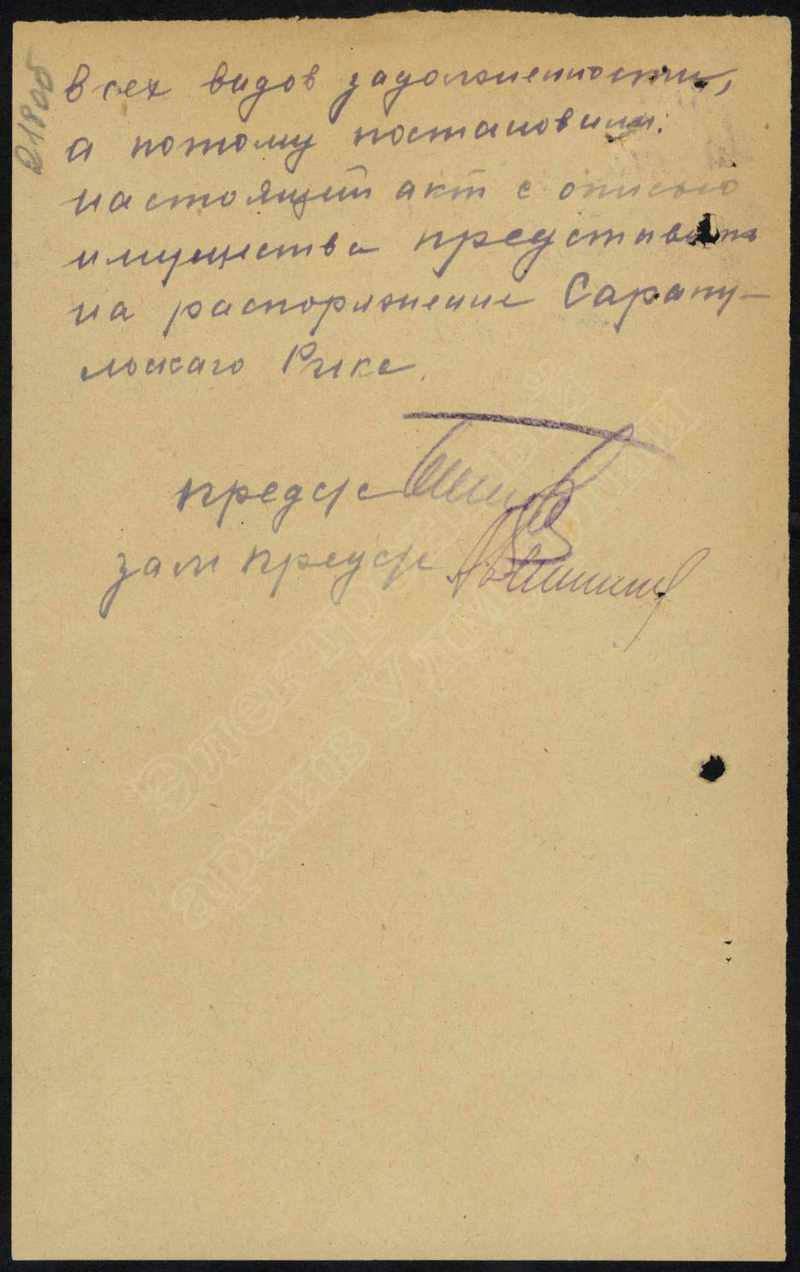 всех видов задолженности,
а потому постановили:
настоящий акт с описью
имущества представить
на распоряжение Сарапу-
льскаго Рика.
предс/с
зам предс/с
Электронный
архив Удмуртии